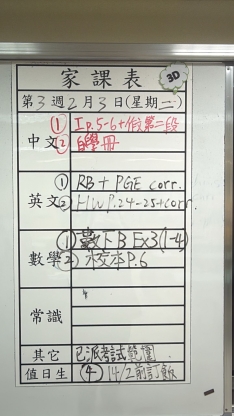 家課表
3D
第3週2月3日(星期二)
中文
① Ip.5-6+作第二段
② 自學冊
英文
① RB + PGE corr.
② HW P.24-25+corr.
數學
① 數下B Ex3(1-4)
② 校本P.6
常識
其它 已派考試範圍
值日生 (4) 14/2前訂飯